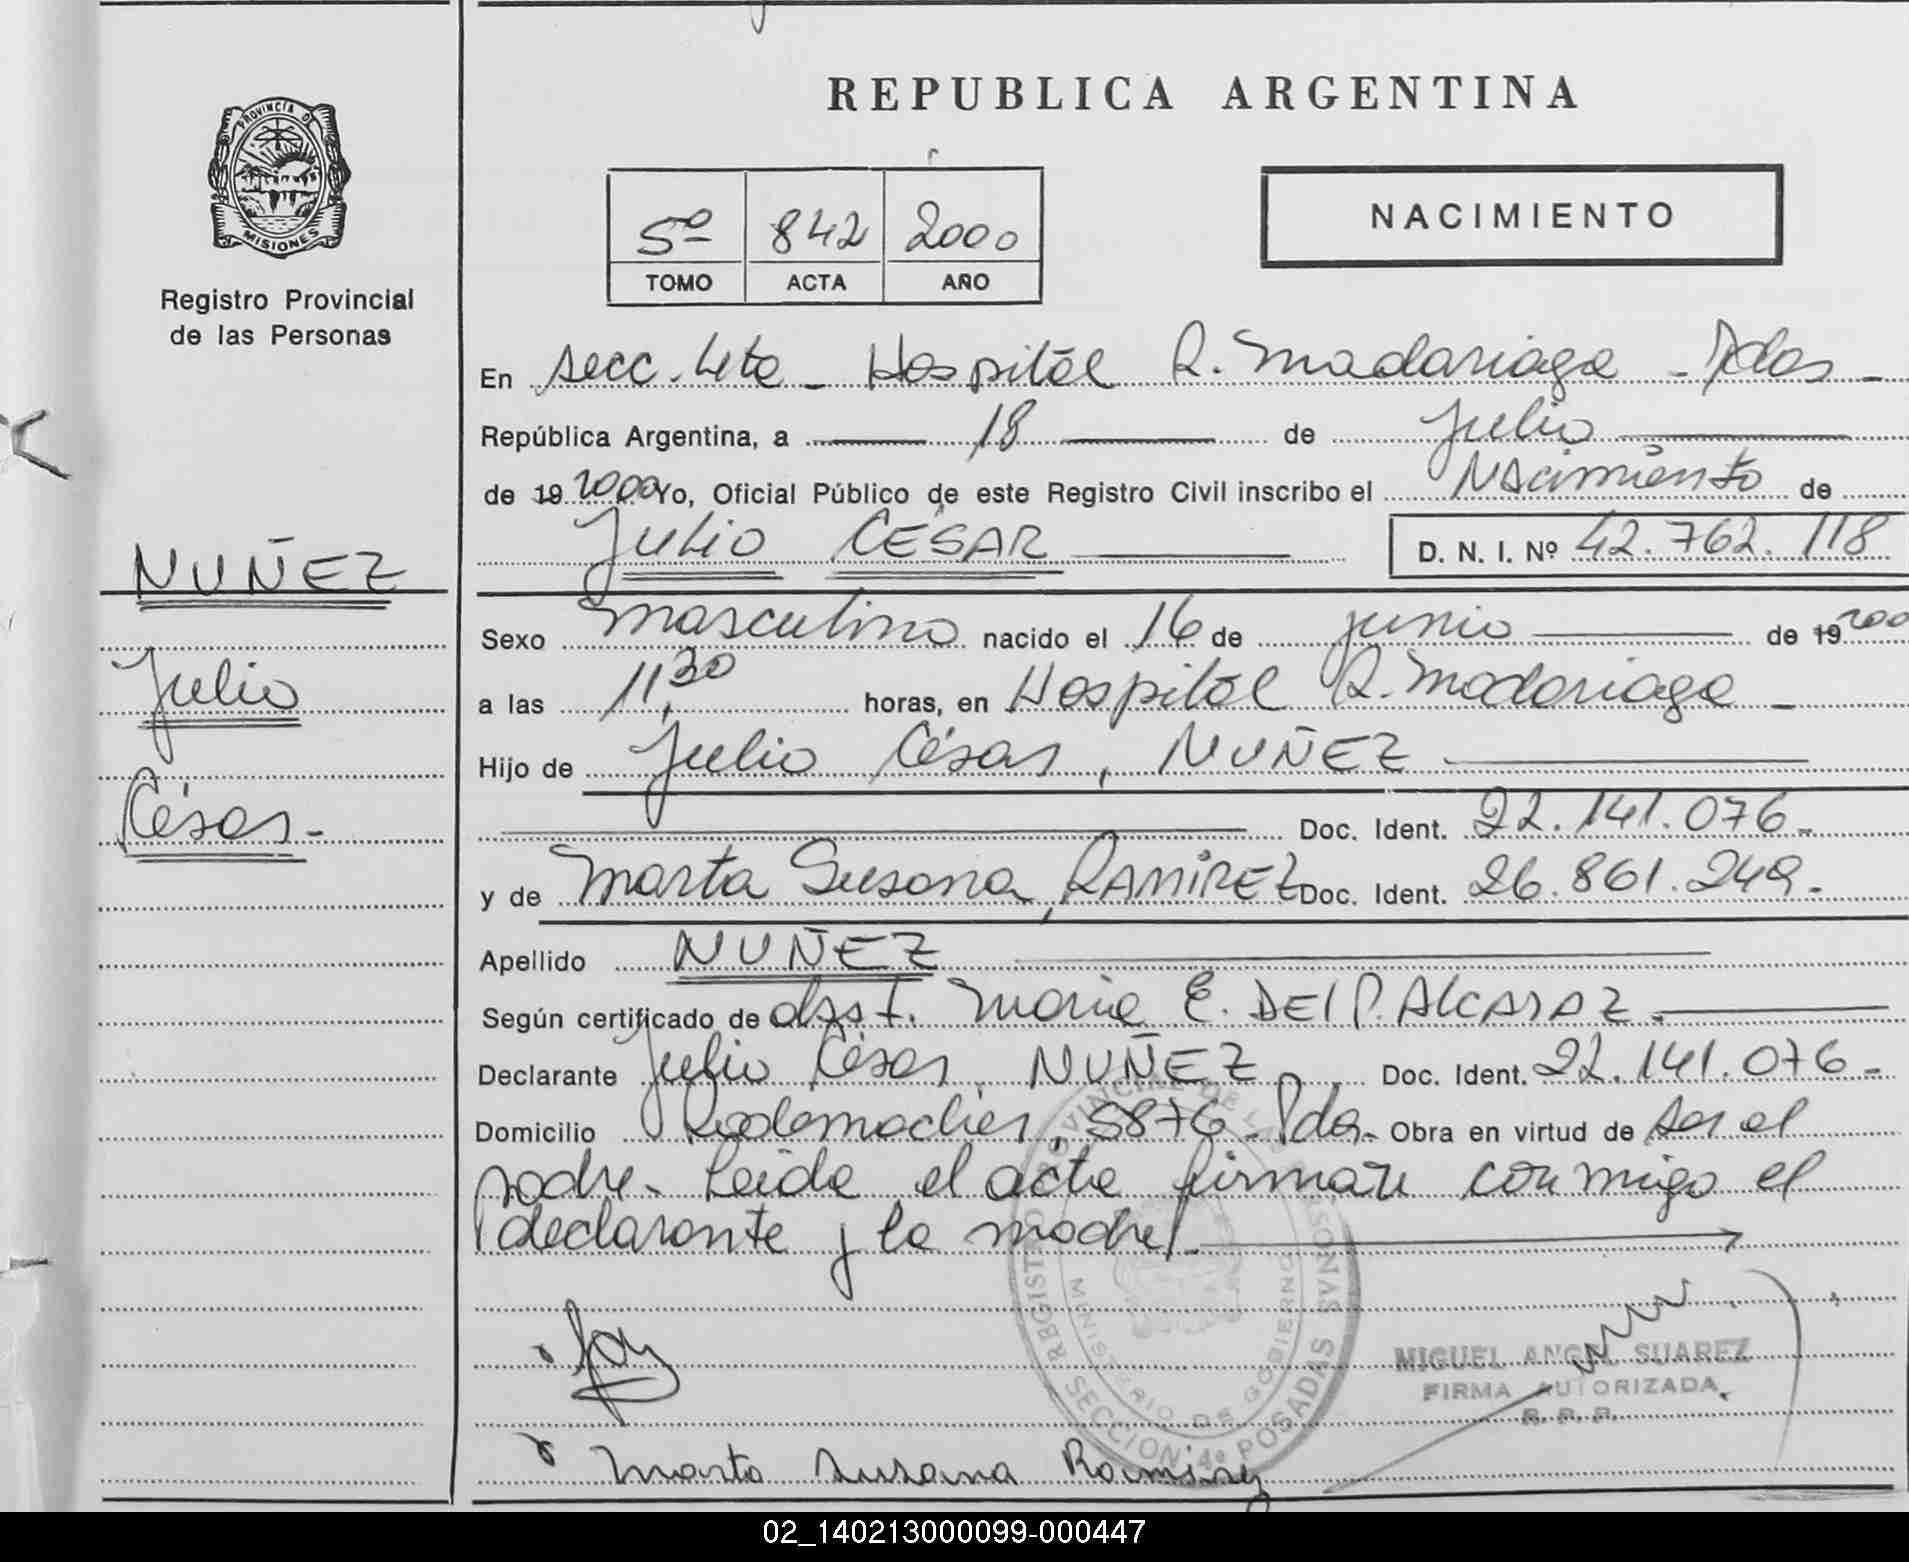 REPUBLICA ARGENTINA
PROVINCIA DE MISIONES
Registro Provincial
de las Personas
5º 842 2000
TOMO ACTA AÑO
NACIMIENTO
En secc. 4ta - Hospital R. Madariaga - Pdas -
República Argentina, a 18 de Julio
de 19 2000 Yo, Oficial Público de este Registro Civil inscribo el Nacimiento de
JULIO CÉSAR D. N. I. Nº 42.762.118
NUÑEZ
Julio
César.-
Sexo masculino nacido el 16 de junio de 19 200
a las 11,30 horas, en Hospital R. Madariaga -
Hijo de Julio César, NUÑEZ
Doc. Ident. 22.141.076.-
y de Marta Susana, RAMÍREZ Doc. Ident. 26.861.249.-
Apellido NUÑEZ
Según certificado de obst. María E. DEL P. ALCARAZ.
Declarante Julio César, NUÑEZ Doc. Ident. 22.141.076.-
Domicilio 5876 - Pdas.- Obra en virtud de ser el
padre.- Leída el acta firman conmigo el
declarante y la madre.
REGISTRO PROVINCIAL DE LAS PERSONAS
MINISTERIO DE GOBIERNO
SECCION 4ª POSADAS
MIGUEL ANGEL SUAREZ
FIRMA AUTORIZADA
R. P. P.
Marta Susana Ramirez
02_140213000099-000447